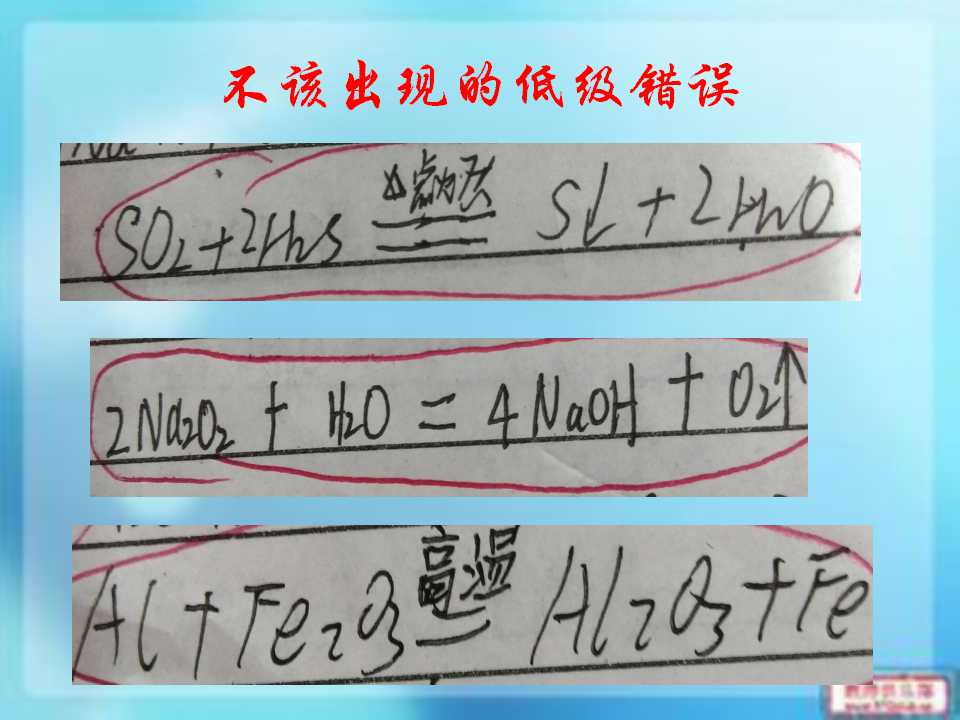 不该出现的低级错误
SO₂+2H₂S ══ S↓+2H₂O
2Na₂O₂ + H₂O = 4NaOH + O₂↑
Al+Fe₂O₃ 高温 Al₂O₃+Fe